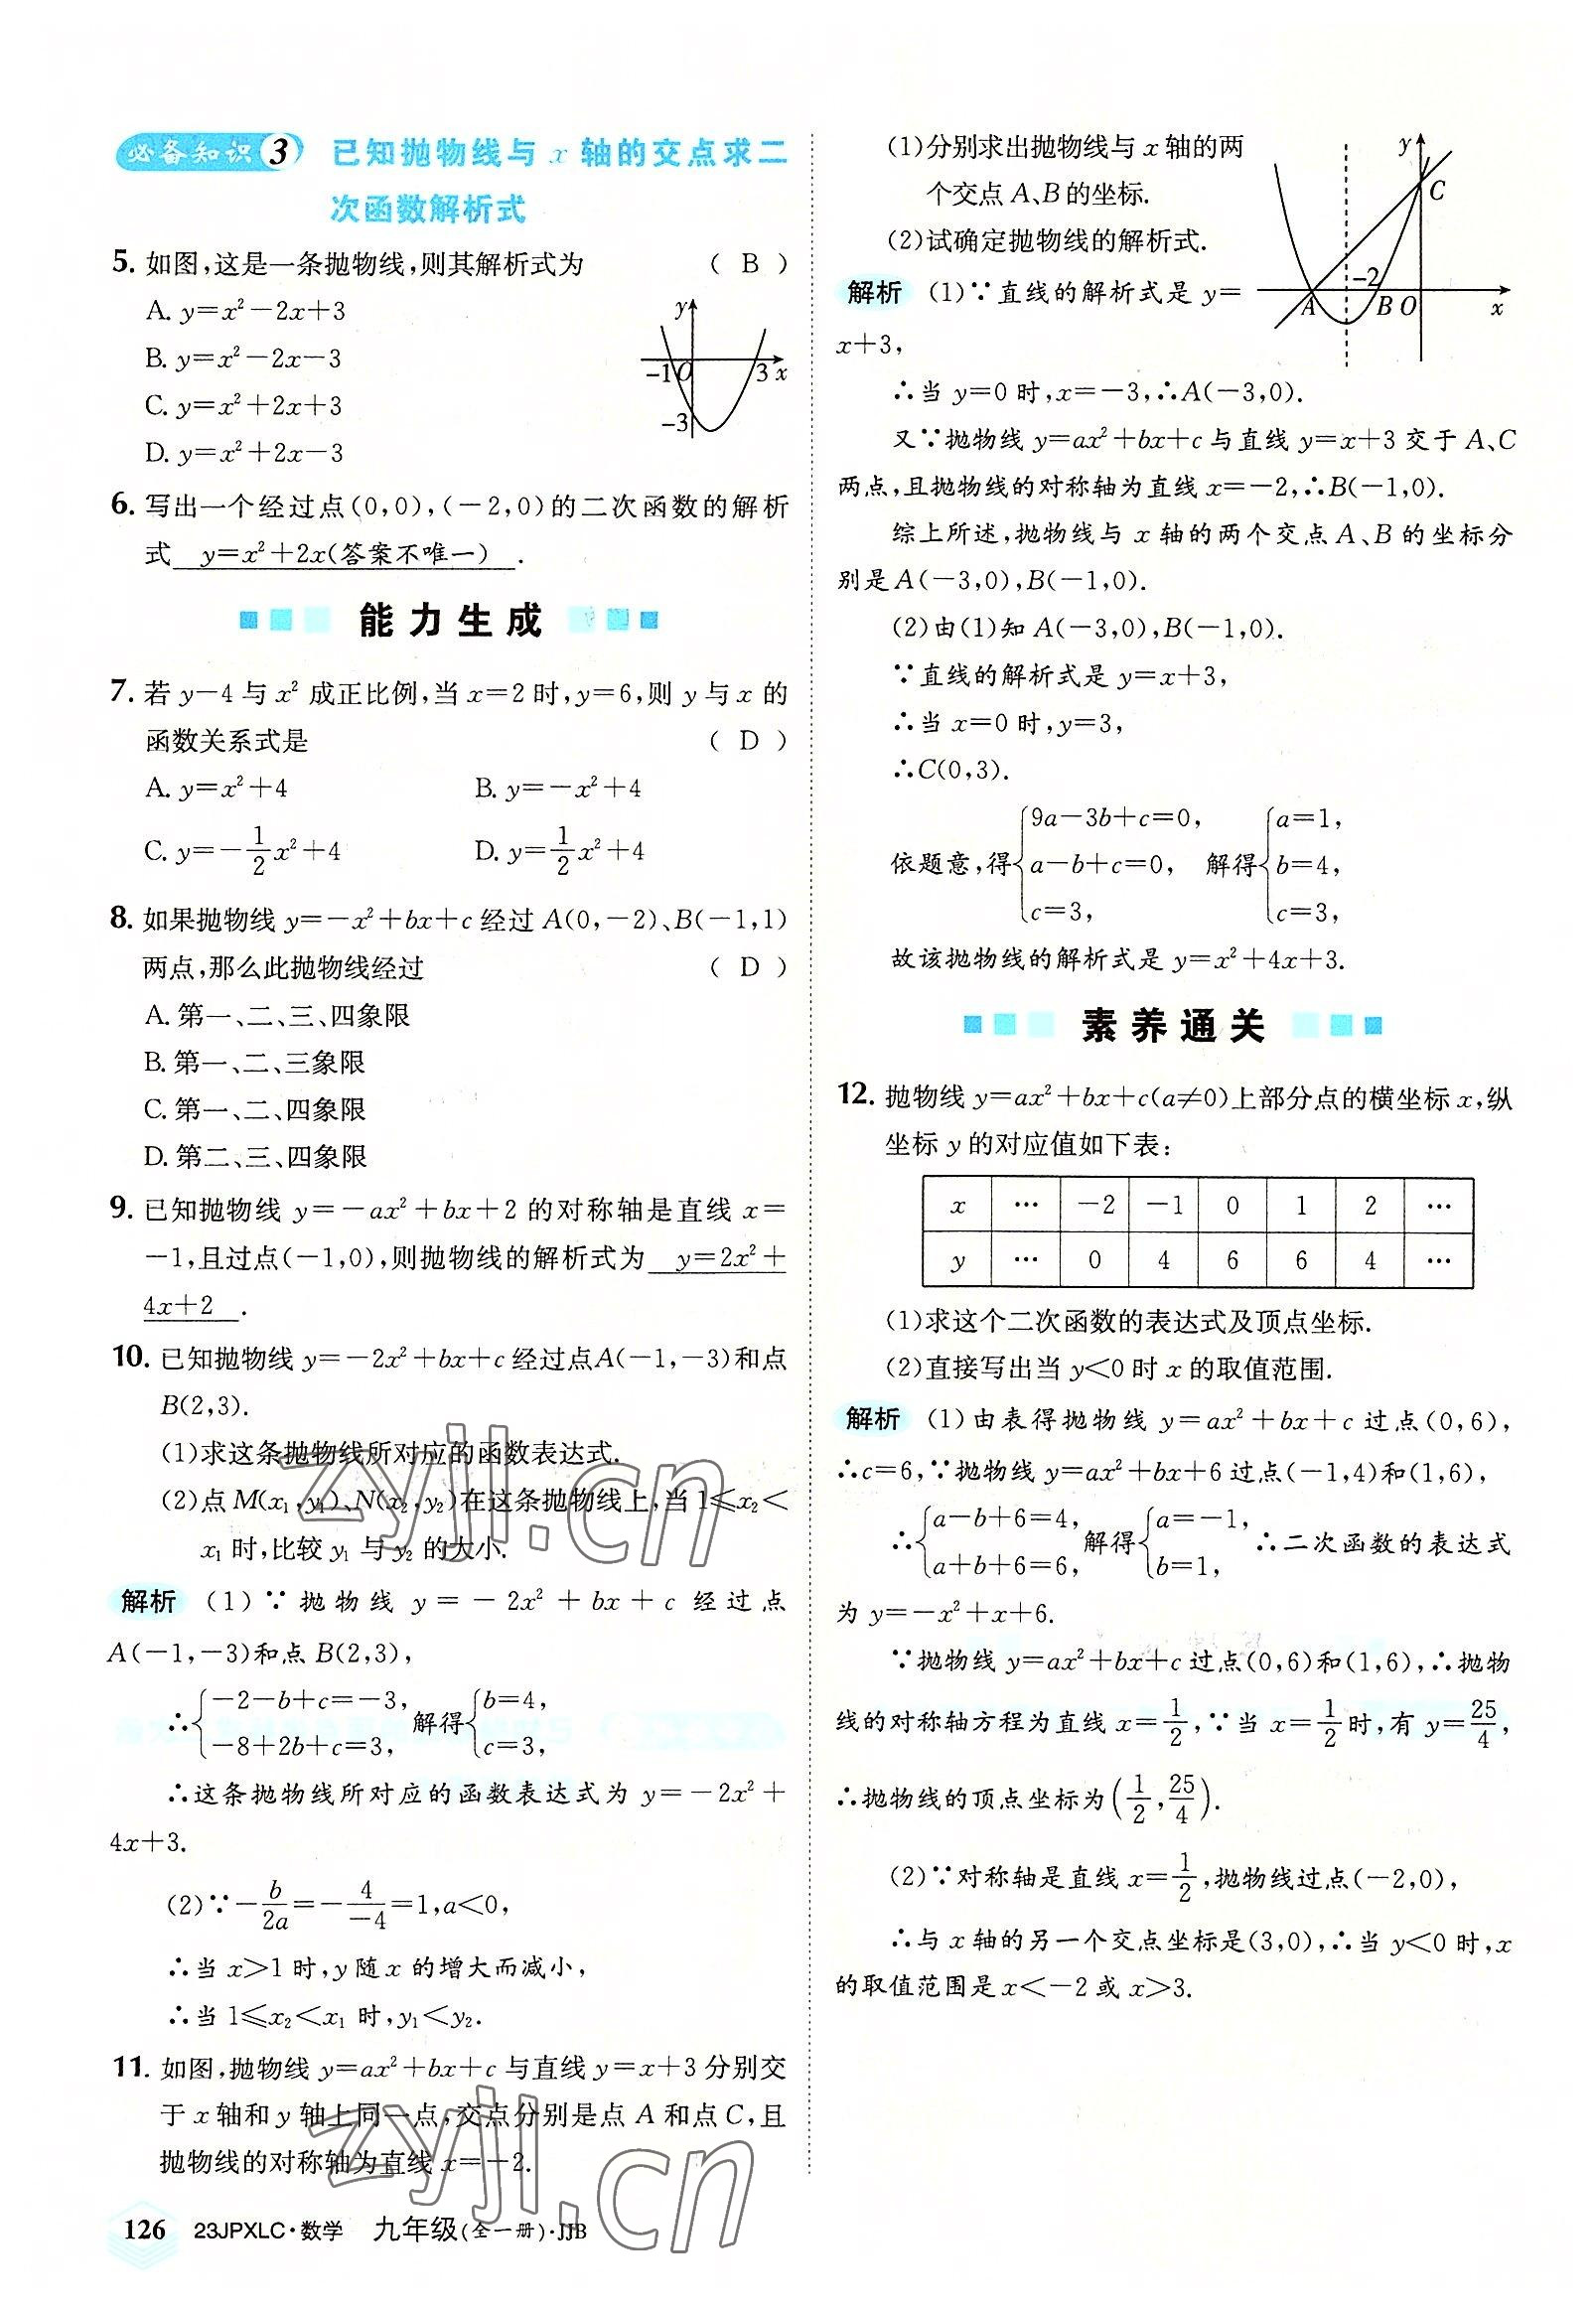 必备知识 3 已知抛物线与 x 轴的交点求二
次函数解析式
5. 如图,这是一条抛物线,则其解析式为 ( B )
A. y=x²-2x+3
B. y=x²-2x-3
C. y=x²+2x+3
D. y=x²+2x-3
y
-1 O 3 x
-3
6. 写出一个经过点(0,0),(-2,0)的二次函数的解析
式 y=x²+2x(答案不唯一) .
能力生成
7. 若 y-4 与 x² 成正比例,当 x=2 时,y=6,则 y 与 x 的
函数关系式是 ( D )
A. y=x²+4 B. y=-x²+4
C. y=-1/2x²+4 D. y=1/2x²+4
8. 如果抛物线 y=-x²+bx+c 经过 A(0,-2)、B(-1,1)
两点,那么此抛物线经过 ( D )
A. 第一、二、三、四象限
B. 第一、二、三象限
C. 第一、二、四象限
D. 第二、三、四象限
9. 已知抛物线 y=-ax²+bx+2 的对称轴是直线 x=
-1,且过点(-1,0),则抛物线的解析式为 y=2x²+
4x+2 .
10. 已知抛物线 y=-2x²+bx+c 经过点A(-1,-3)和点
B(2,3).
(1)求这条抛物线所对应的函数表达式.
(2)点 M(x₁,y₁)、N(x₂,y₂)在这条抛物线上,当 1≤x₂<
x₁ 时,比较 y₁ 与 y₂ 的大小.
解析 (1)∵抛物线 y=-2x²+bx+c 经过点
A(-1,-3)和点 B(2,3),
∴{-2-b+c=-3, -8+2b+c=3, 解得{b=4, c=3,
∴这条抛物线所对应的函数表达式为 y=-2x²+
4x+3.
(2)∵-b/2a=-4/-4=1,a<0,
∴当 x>1 时,y 随 x 的增大而减小,
∴当 1≤x₂<x₁ 时,y₁<y₂.
11. 如图,抛物线 y=ax²+bx+c 与直线 y=x+3 分别交
于 x 轴和 y 轴上同一点,交点分别是点 A 和点 C,且
抛物线的对称轴为直线 x=-2.
126 23JPXLC·数学 九年级(全一册)·JJB
(1)分别求出抛物线与 x 轴的两
个交点 A、B 的坐标.
(2)试确定抛物线的解析式.
y
C
-2
A B O x
解析 (1)∵直线的解析式是 y=
x+3,
∴当 y=0 时,x=-3,∴A(-3,0).
又∵抛物线 y=ax²+bx+c 与直线 y=x+3 交于 A、C
两点,且抛物线的对称轴为直线 x=-2,∴B(-1,0).
综上所述,抛物线与 x 轴的两个交点 A、B 的坐标分
别是 A(-3,0),B(-1,0).
(2)由(1)知 A(-3,0),B(-1,0).
∵直线的解析式是 y=x+3,
∴当 x=0 时,y=3,
∴C(0,3).
依题意,得{9a-3b+c=0, a-b+c=0, c=3, 解得{a=1, b=4, c=3,
故该抛物线的解析式是 y=x²+4x+3.
素养通关
12. 抛物线 y=ax²+bx+c(a≠0)上部分点的横坐标 x,纵
坐标 y 的对应值如下表:
x … -2 -1 0 1 2 …
y … 0 4 6 6 4 …
(1)求这个二次函数的表达式及顶点坐标.
(2)直接写出当 y<0 时 x 的取值范围.
解析 (1)由表得抛物线 y=ax²+bx+c 过点(0,6),
∴c=6,∵抛物线 y=ax²+bx+6 过点(-1,4)和(1,6),
∴{a-b+6=4, a+b+6=6, 解得{a=-1, b=1, ∴二次函数的表达式
为 y=-x²+x+6.
∵抛物线 y=ax²+bx+c 过点(0,6)和(1,6),∴抛物
线的对称轴方程为直线 x=1/2,∵当 x=1/2时,有 y=25/4,
∴抛物线的顶点坐标为(1/2,25/4).
(2)∵对称轴是直线 x=1/2,抛物线过点(-2,0),
∴与 x 轴的另一个交点坐标是(3,0),∴当 y<0 时,x
的取值范围是 x<-2 或 x>3.
zyjl.cn
zyjl.cn